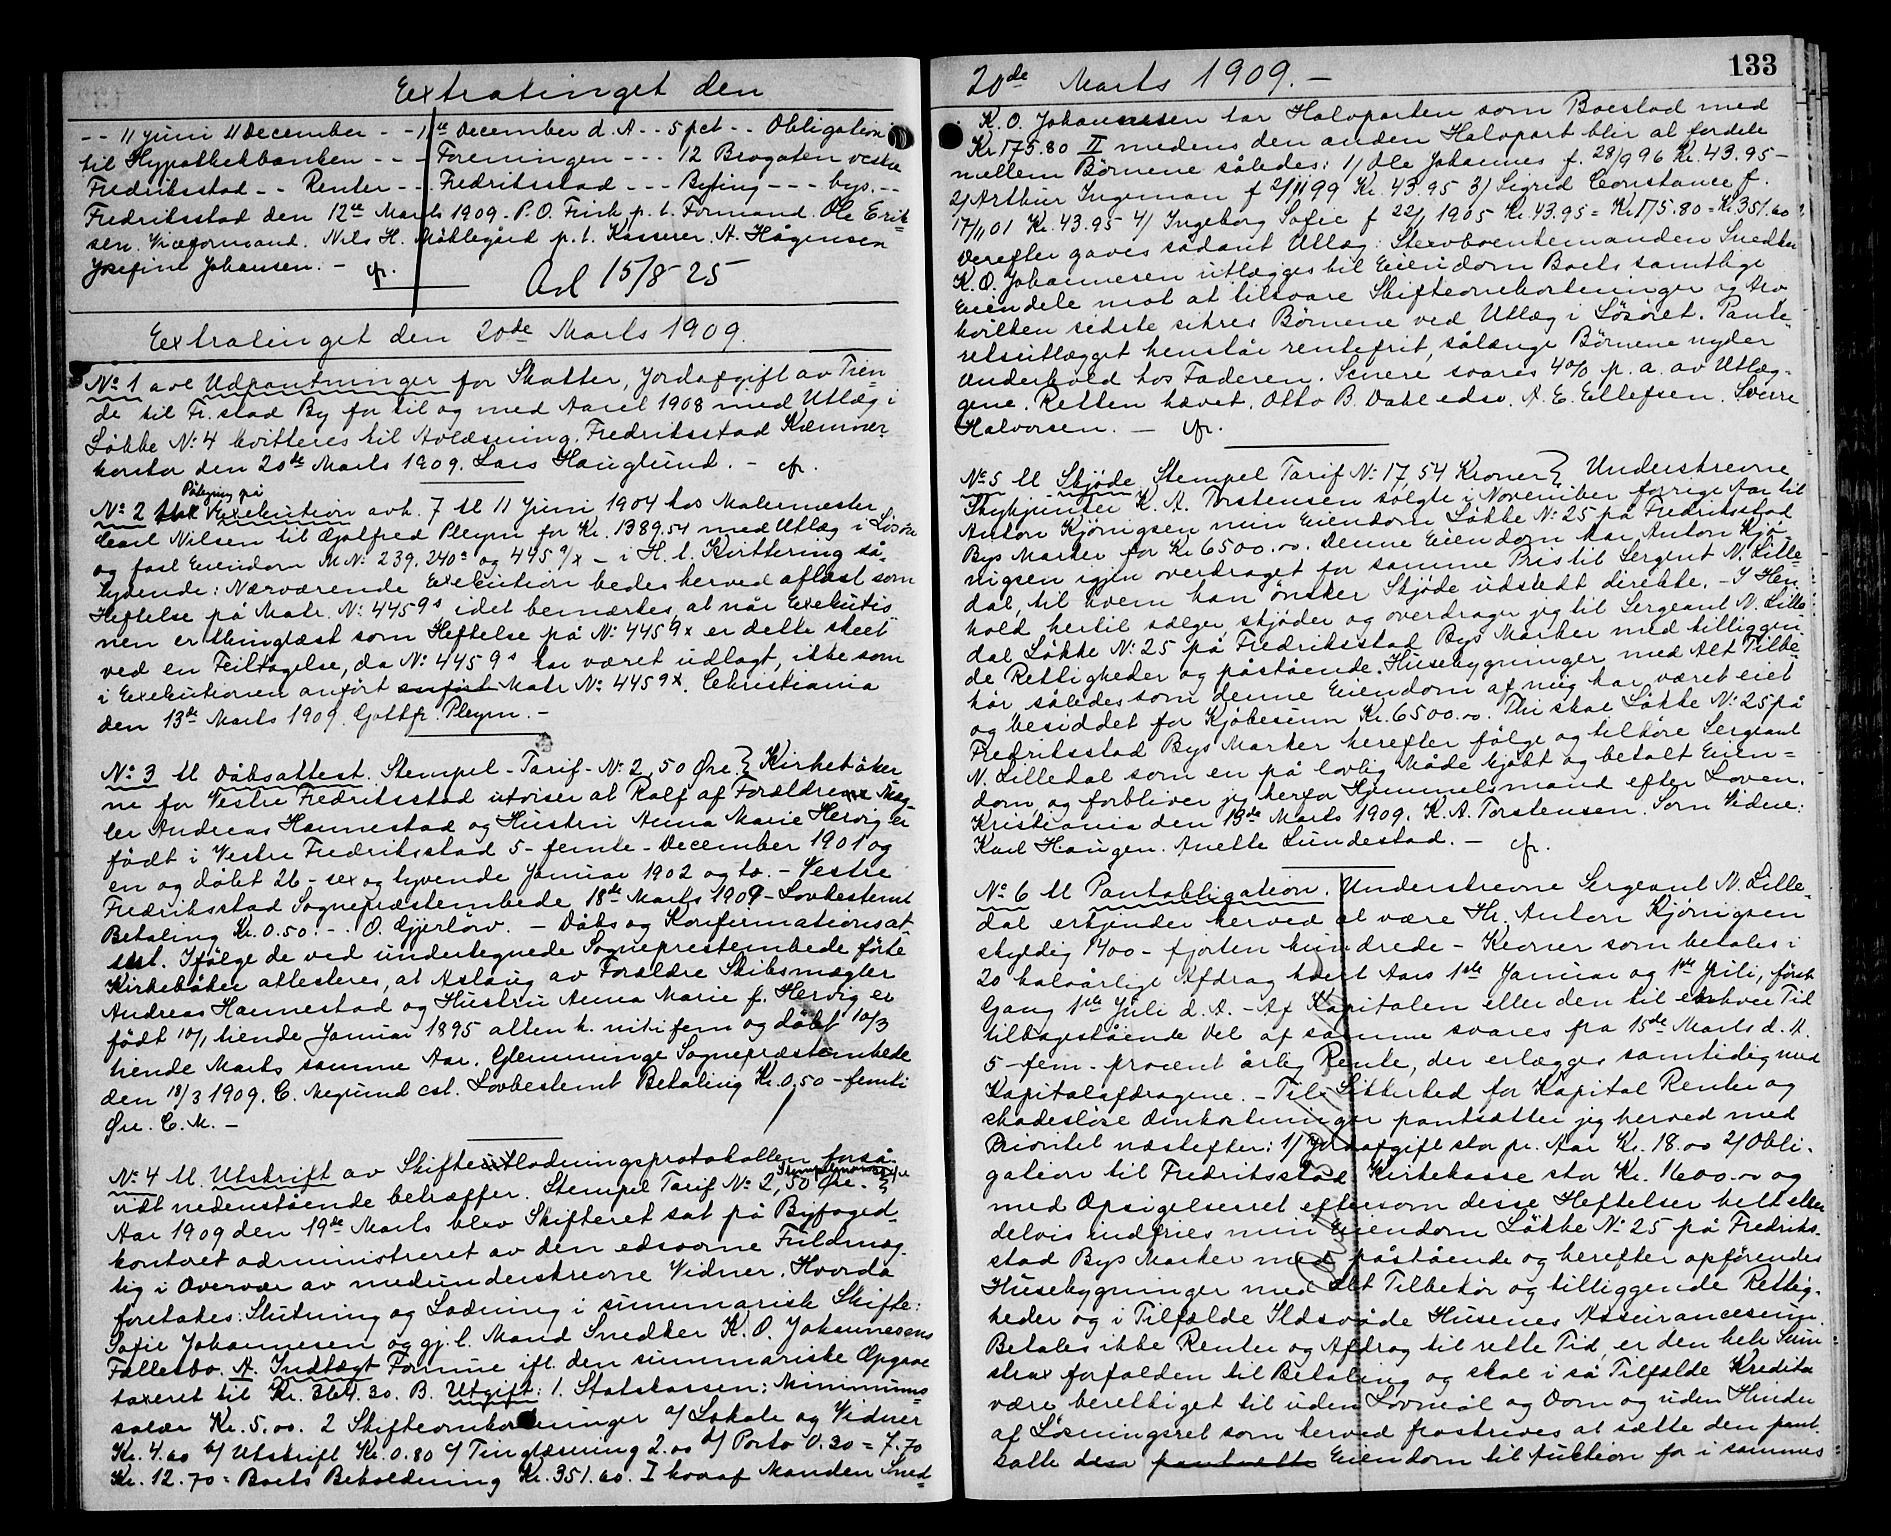 Extratinget den
-- 11 Juni 11 December -- 11te December d. A -- 5 pct -- Obligation
til Hypothekbanken --- Foreningen --- 12 Brogaten vestre
Fredriksstad -- Renter -- Fredriksstad --- Byting --- bys.--
Fredriksstad den 12te Marts 1909. P. O. Fink p. t. Formand. Ole Erik-
sen. Viceformand. Nils H. Møklegård p. t. Kasserer. A. Hågensen
Josefine Johansen. - cfr.
Avl 15/8 25
Extratinget den 20de Marts 1909.
No 1 avl Udpantninger for Skatter, Jordafgift av Tien-
de til Fr.stad By for til og med Aaret 1908 med Utlæg i
Løkke No 4 kvitteres til Avlæsning. Fredriksstad Kæmner-
kontor den 20de Marts 1909. Lars Hauglund. - cfr.
Påtegning på
No 2 Exekution avh. 7 tl 11 Juni 1904 hos Malermester
Carl Nilsen til Gotfred Pleym for Kr. 1389,54 med Utlæg i Løsøre
og fast Eiendom M No 239. 240a og 445 9/x - i H. t. Kvittering så-
lydende: Nærværende Exekution bedes herved aflæst som
Heftelse på Matr. No 445 9s idet bemærkes, at når Exekutio-
nen er thinglæst som Heftelse på No 445 9x er dette skeet
ved en Feiltagelse, da No 445 9s har været udlagt, ikke som
i Exekutionen anført anført Matr No 445 9x. Christiania
den 13de Marts 1909. Gottfr. Pleym. -
No 3 tl Dåbsattest. Stempel-Tarif-No 2, 50 Øre.} Kirkebøker-
ne for Vestre Fredriksstad utviser at Rolf af Forældre Mæg-
ler Andreas Hannestad og Hustru Anna Marie Hervig er
født i Vestre Fredriksstad 5-femte-December 1901 og
en og døbt 26-sex og tyvende Januar 1902 og to. - Vestre
Fredriksstad Sognepræstembede 18de Marts 1909-Lovbestemt
Betaling Kr. 0.50. -. O. Gjerløw. - Dåbs og Konfirmationsat-
test. Ifølge de ved undertegnede Sogneprestembede førte
Kirkebøker attesteres, at Aslaug av Forældre Skibsmægler
Andreas Hannestad og Hustru Anna Marie f. Hervig er
født 10/1 tiende Januar 1895 atten h. nitifem og døbt 10/3
tiende Marts samme Aar. Glemminge Sognepræstembede
den 18/3 1909. C. Meglund cst. Lovbestemt Betaling Kr. 0.50-femti
Øre. C. M. -
No 4 tl. Utskrift av Skifteutlodningsprotokollen forså-
vidt nedenstående betræffer. Stempel Tarif No 2, 50 Øre.}
Aar 1909 den 19de Marts blev Skifteret sat på Byfoged-
kontoret administreret av den edsvorne Fuldmæg-
tig i Overvær av medunderskrevne Vidner. Hvorda
foretokes: Slutning og Lodning i summarisk Skifte:
Sofie Johannesen og gj. l. Mand Snedker K. O. Johannesens
Fællesbo. A. Indtægt Formue ifl. den summariske Opgave
taxeret til Kr. 364.30. B. Utgift: 1. Statskassen: Minimums-
salær Kr. 5.00. 2 Skifteomkostninger a/ Lokale og Vidner
Kr. 4.60 b/ Utskrift Kr. 0.80 c/ Tinglæsning 2.00 d/ Porto 0.30 = 7.70
Kr. 12.70 = Boets Beholdning Kr. 351.60. I hvoraf Manden Sned-
20de Marts 1909. -
133
K. O. Johannesen tar Halvparten som Boeslod med
Kr 175.80 II medens den anden Halvpart blir at fordele
mellem Børnene således: 1/ Ole Johannes f. 28/9 96 Kr. 43.95 -
2/ Arthur Ingeman f 2/11 99 Kr. 43.95 3/ Sigrid Constance f.
17/11 01 Kr. 43.95 4/ Ingeborg Sofie f 22/1 1905 Kr. 43.95 = Kr 175.80 = Kr 351.60
Derefter gaves sådant Utlæg: Stervboenkemanden Snedker
K. O. Johannesen utlægges til Eiendom Boets samtlige
Eiendele mot at tilsvare Skifteomkostninger og Arv
hvilken sidste sikres Børnene ved Utlæg i Løsøret. Pante-
retsutlægget henstår rentefrit, sålænge Børnene nyder
Underhold hos Faderen. Senere svares 4% p. a. av Utlæg-
gene. Retten hævet. Otto B. Dahl edsv. A. E. Ellefsen. Sverre
Halvorsen. - cfr.
No 5 tl Skjøde Stempel Tarif No 17 54 Kroner} Understrevne
K. A. Torstensen solgte i November forrige Aar til
Anton Kjønigsen min Eiendom Løkke No 25 på Fredriksstad
Bys Marker for Kr 6500.00. Denne Eiendom har Anton Kjø-
nigsen igjen overdraget for samme Pris til Sergent N. Lille-
dal, til hvem han ønsker Skjøde udstedt direkte. - I Hen-
hold hertil sælger skjøder og overdrager jeg til Sergeant N. Lille-
dal Løkke No 25 på Fredriksstad Bys Marker med tilliggen-
de Rettigheder og påstående Husebygninger med Alt Tilbe-
hør således som denne Eiendom af mig har været eiet
og besiddet for Kjøbesum Kr. 6500.00. Thi skal Løkke No 25 på
Fredriksstad Bys Marker herefter følge og tilhøre Sergeant
N. Lilledal som en på lovlig Måde kjøbt og betalt Eien-
dom, og forbliver jeg herfor Hjemmelsmand efter Loven.
Kristiania den 13de Marts 1909. K. A. Torstensen. Som Vidne:
Karl Haugen. Anette Lundestad. - cfr.
No 6 tl Pantobligation. Understrevne Sergeant N. Lille-
dal erkjender herved at være Hr. Anton Kjønigsen
skyldig 1400 - fjorten hundrede - Kroner som betales i
20 halvårlige Afdrag hvert Aars 1ste Januar og 1ste Juli, først
Gang 1ste Juli d. A. - Af Kapitalen eller den til enhver Tid
tilbagestående Del af samme svares fra 15de Marts d. A.
5-fem-procent årlig Rente, der erlægges samtidig med
Kapitalafdragene. - Til Sikkerhed for Kapital Renter og
skadesløse Omkostninger pantsætter jeg herved med
Prioritet næstefter: 1/ Jordafgift stor pr. Aar Kr. 18.00 2/ Obli-
gation til Fredriksstad Kirkekasse stor Kr. 1600.00 og
med Opsigelsesret eftersom disse Heftelser helt eller
delvis indfries min Eiendom Løkke No 25 på Fredriks-
stad Bys Marker med påstående og herefter opførendes
Husebygninger med Alt Tilbehør og tilliggende Rettig-
heder og i Tilfælde Ildsvåde Husenes Assurancesum.
Betales ikke Renter og Afdrag til rette Tid, er den hele Sum
strax forfalden til Betaling og skal i så Tilfælde Kreditor
være berettiget til uden Lovmål og Dom og uden Hinder
af Løsningsret som herved fraskrives at sætte den pant-
satte den pantsatte Eiendom til Auktion for i sammes